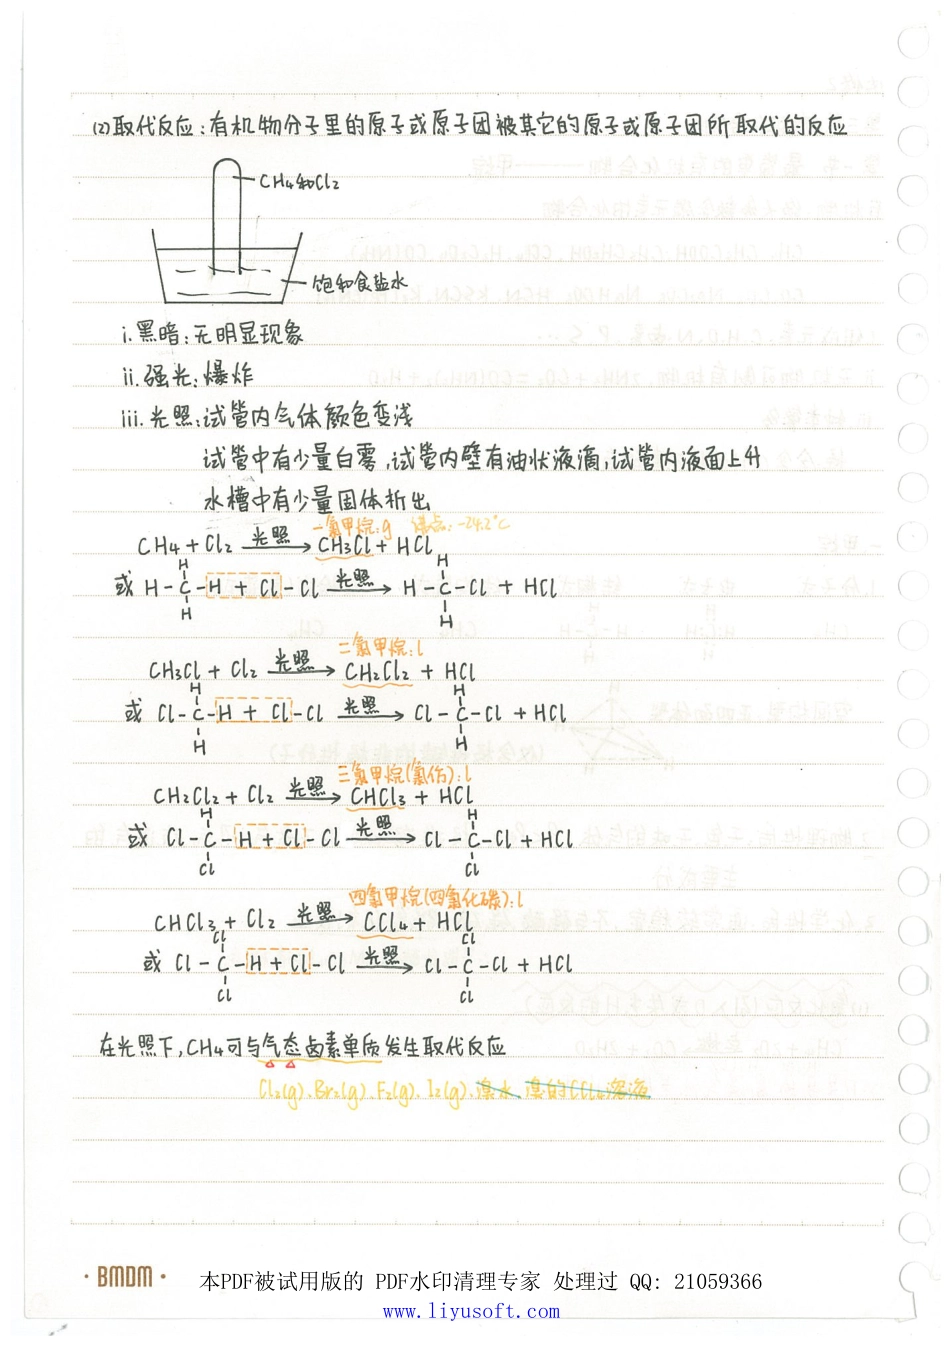 (2)取代反应:有机物分子里的原子或原子团被其它的原子或原子团所取代的反应
CH4和Cl2
饱和食盐水
i.黑暗:无明显现象
ii.强光:爆炸
iii.光照:试管内气体颜色变浅
试管中有少量白雾,试管内壁有油状液滴,试管内液面上升
水槽中有少量固体析出
一氯甲烷:g 沸点:-24.2°C
CH4+Cl2 光照→ CH3Cl+HCl
H H
或 H-C-H + Cl-Cl 光照→ H-C-Cl + HCl
H H
二氯甲烷:l
CH3Cl + Cl2 光照→ CH2Cl2 + HCl
H H
或 Cl-C-H + Cl-Cl 光照→ Cl-C-Cl + HCl
H H
三氯甲烷(氯仿):l
CH2Cl2 + Cl2 光照→ CHCl3 + HCl
H H
或 Cl-C-H + Cl-Cl 光照→ Cl-C-Cl + HCl
Cl Cl
四氯甲烷(四氯化碳):l
CHCl3 + Cl2 光照→ CCl4 + HCl
Cl Cl
或 Cl-C-H + Cl-Cl 光照→ Cl-C-Cl + HCl
Cl Cl
在光照下,CH4可与气态卤素单质发生取代反应
Cl2(g).Br2(g).F2(g).I2(g).溴水.溴的CCl4溶液
·BMDM·
本PDF被试用版的 PDF水印清理专家 处理过 QQ: 21059366
www.liyusoft.com